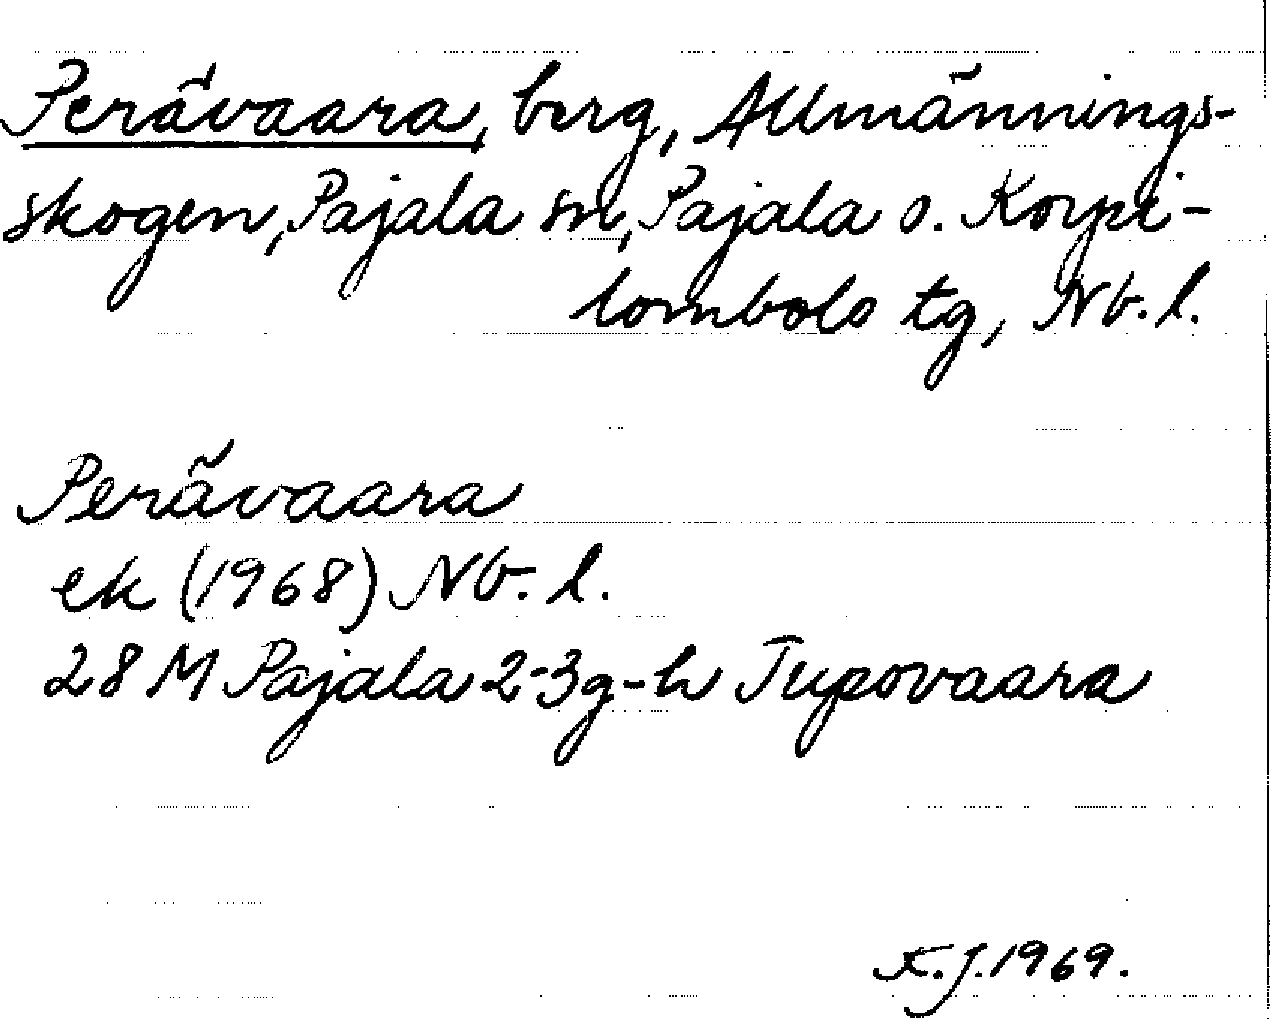 Perävaara, berg, Allmännings-
skogen, Pajala sn, Pajala o. Korpi-
lombolo tg, Nb. l.
Perävaara
ek (1968) Nb. l.
28 M Pajala 2-3g-h Jupovaara
K.J. 1969.